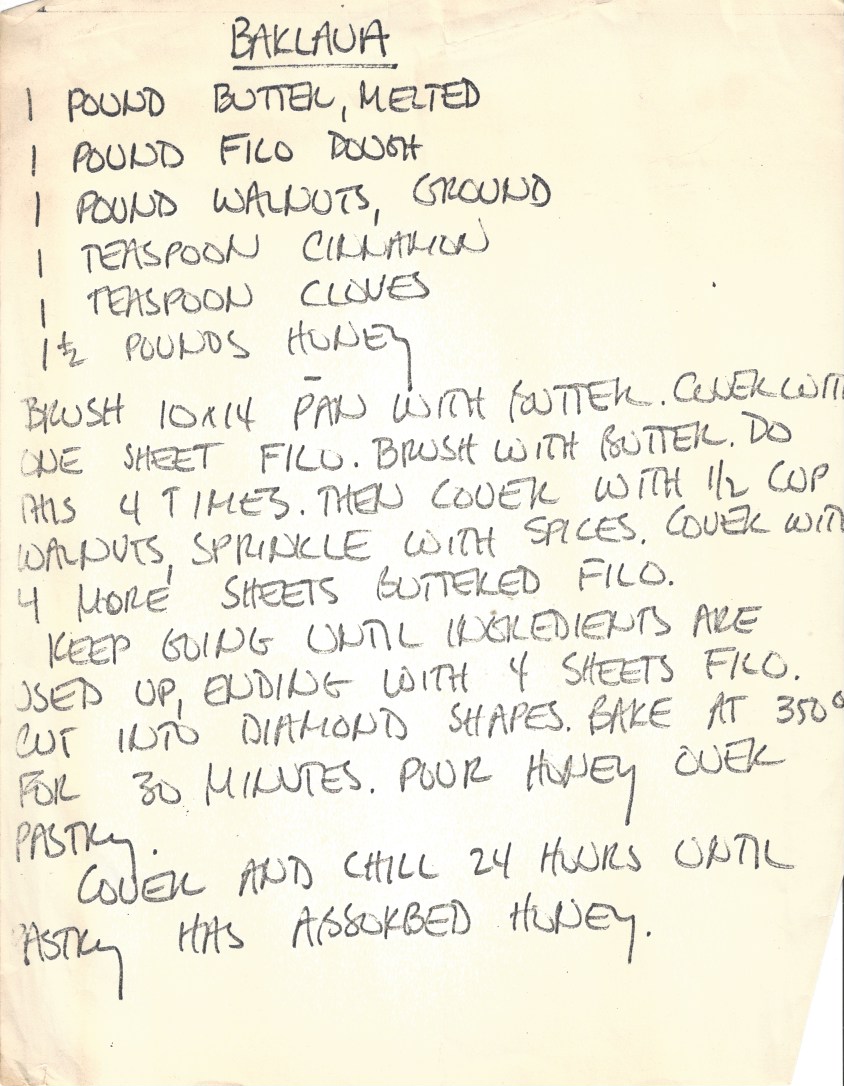 BAKLAVA
1 POUND BUTTER, MELTED
1 POUND FILO DOUGH
1 POUND WALNUTS, GROUND
1 TEASPOON CINNAMON
1 TEASPOON CLOVES
1 1/2 POUNDS HONEY
BRUSH 10x14 PAN WITH BUTTER. COVER WITH
ONE SHEET FILO. BRUSH WITH BUTTER. DO
THIS 4 TIMES. THEN COVER WITH 1/2 CUP
WALNUTS, SPRINKLE WITH SPICES. COVER WITH
4 MORE SHEETS BUTTERED FILO.
KEEP GOING UNTIL INGREDIENTS ARE
USED UP, ENDING WITH 4 SHEETS FILO.
CUT INTO DIAMOND SHAPES. BAKE AT 350°
FOR 30 MINUTES. POUR HONEY OVER
PASTRY.
COVER AND CHILL 24 HOURS UNTIL
PASTRY HAS ABSORBED HONEY.